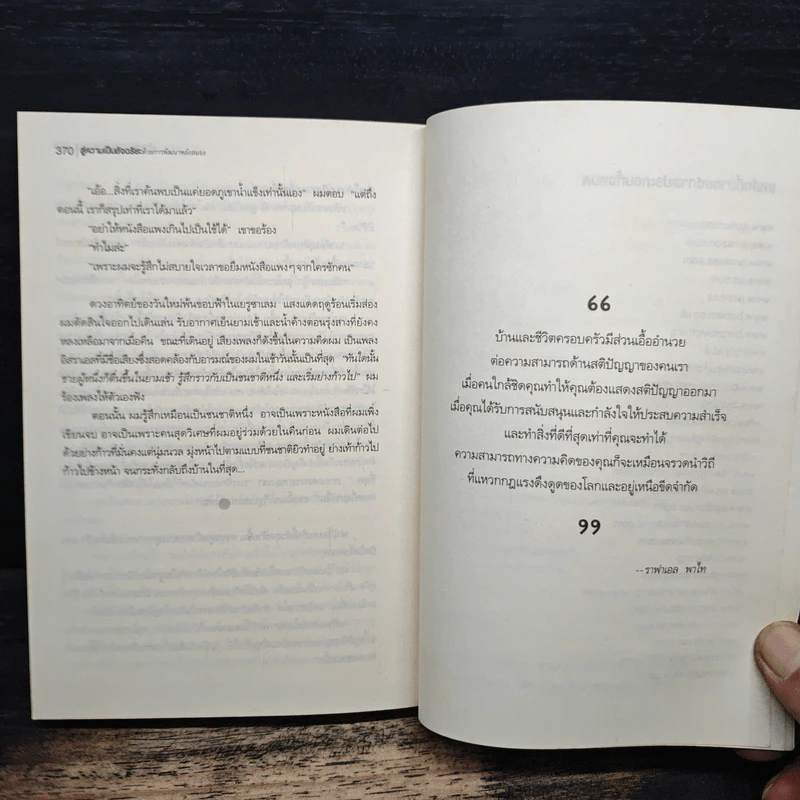 370 สู่ความเป็นอัจฉริยะด้วยการพัฒนาพลังสมอง
"เอ้อ...สิ่งที่เราค้นพบเป็นแค่ยอดภูเขาน้ำแข็งเท่านั้นเอง" ผมตอบ "แต่ถึง
ตอนนี้ เราก็สรุปเท่าที่เราได้มาแล้ว"
"อย่าให้หนังสือแพงเกินไปเป็นใช้ได้" เขาขอร้อง
"ทำไมล่ะ"
"เพราะผมจะรู้สึกไม่สบายใจเวลาขอยืมหนังสือแพงๆจากใครซักคน"
ดวงอาทิตย์ของวันใหม่พ้นขอบฟ้าในเยรูซาเลม แสงแดดฤดูร้อนเริ่มส่อง
ผมตัดสินใจออกไปเดินเล่น รับอากาศเย็นยามเช้าและน้ำค้างตอนรุ่งสางที่ยังคง
หลงเหลือมาจากเมื่อคืน ขณะที่เดินอยู่ เสียงเพลงก็ดังขึ้นในความคิดผม เป็นเพลง
อิสราเอลที่มีชื่อเสียงซึ่งสอดคล้องกับอารมณ์ของผมในเช้าวันนั้นเป็นที่สุด "ทันใดนั้น
ชายผู้หนึ่งก็ตื่นขึ้นในยามเช้า รู้สึกราวกับเป็นชนชาติหนึ่ง และเริ่มย่างก้าวไป" ผม
ร้องเพลงให้ตัวเองฟัง
ตอนนั้น ผมรู้สึกเหมือนเป็นชนชาติหนึ่ง อาจเป็นเพราะหนังสือที่ผมเพิ่ง
เขียนจบ อาจเป็นเพราะคนสุดวิเศษที่ผมอยู่ร่วมด้วยในคืนก่อน ผมเดินต่อไป
ด้วยย่างก้าวที่มั่นคงแต่นุ่มนวล มุ่งหน้าไปตามแบบที่ชนชาติยิวทำอยู่ ย่างเท้าก้าวไป
ก้าวไปข้างหน้า จนกระทั่งกลับถึงบ้านในที่สุด...
66
บ้านและชีวิตครอบครัวมีส่วนเอื้ออำนวย
ต่อความสามารถด้านสติปัญญาของคนเรา
เมื่อคนใกล้ชิดคุณทำให้คุณต้องแสดงสติปัญญาออกมา
เมื่อคุณได้รับการสนับสนุนและกำลังใจให้ประสบความสำเร็จ
และทำสิ่งที่ดีที่สุดเท่าที่คุณจะทำได้
ความสามารถทางความคิดของคุณก็จะเหมือนจรวดนำวิถี
ที่แหวกกฎแรงดึงดูดของโลกและอยู่เหนือขีดจำกัด
99
--ราฟาเอล พาไท